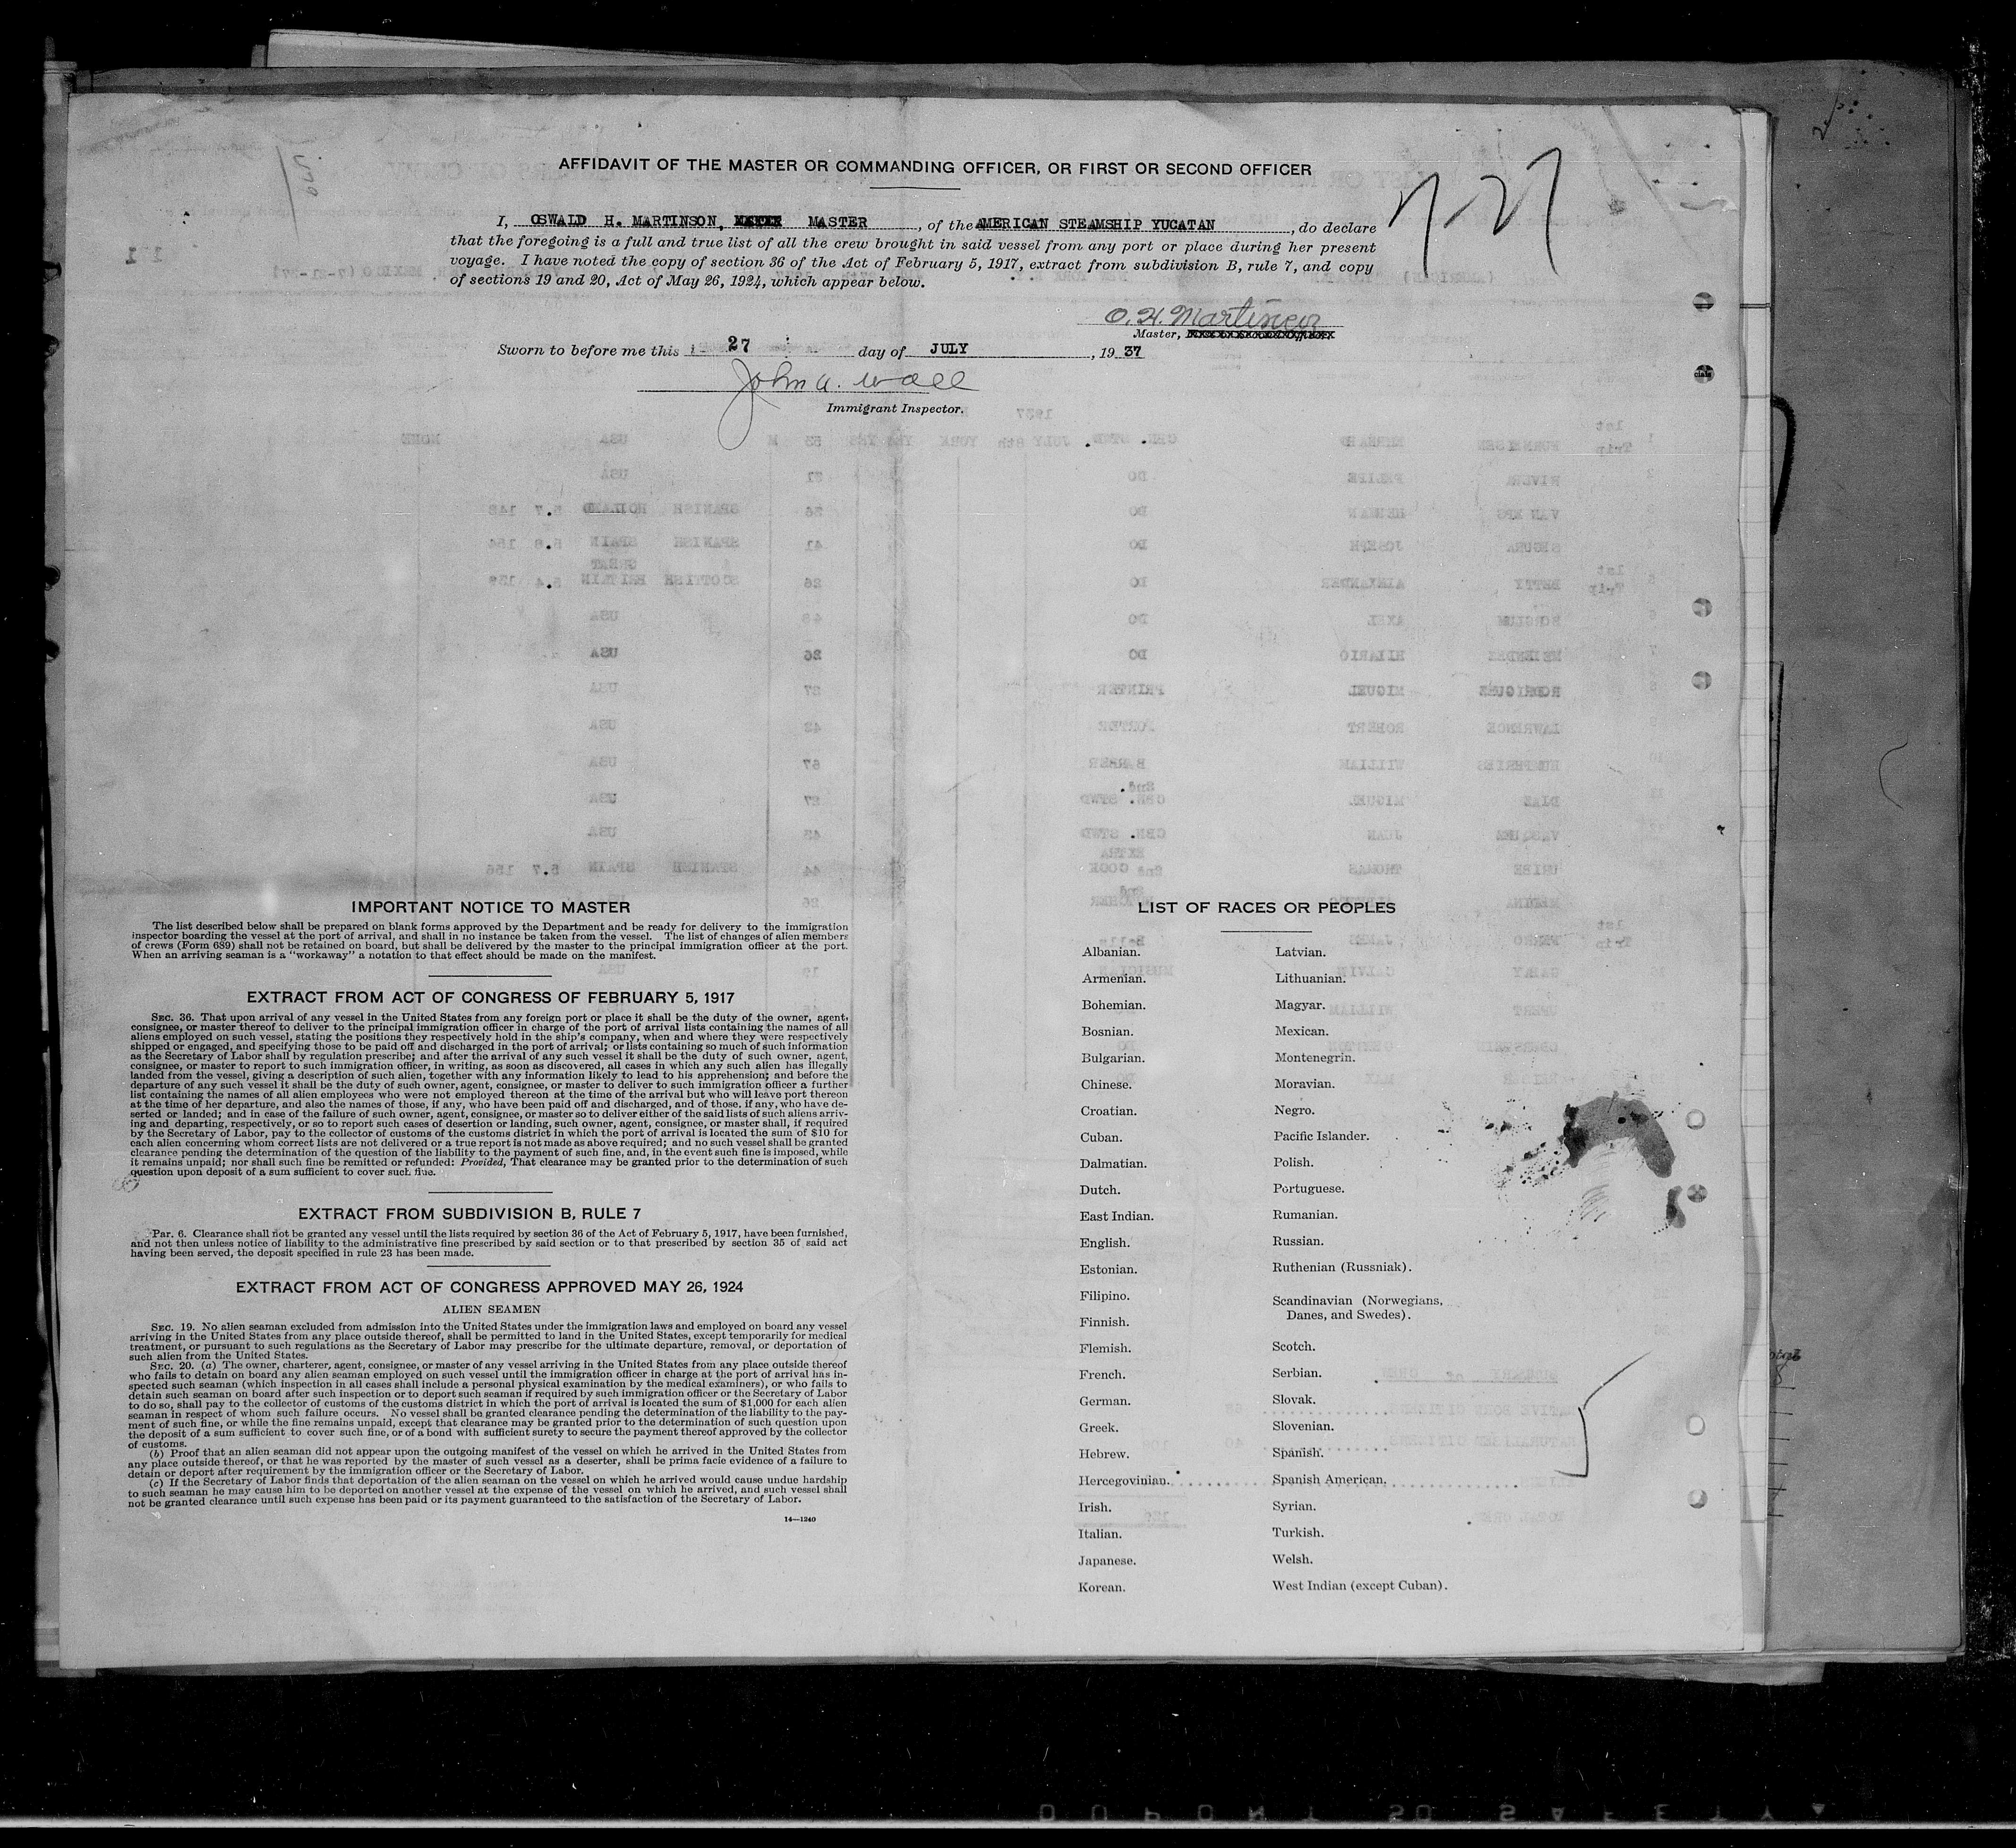 AFFIDAVIT OF THE MASTER OR COMMANDING OFFICER, OR FIRST OR SECOND OFFICER
7-27
I, OSWALD H. MARTINSON, MASTER, of the AMERICAN STEAMSHIP YUCATAN, do declare
that the foregoing is a full and true list of all the crew brought in said vessel from any port or place during her present
voyage. I have noted the copy of section 36 of the Act of February 5, 1917, extract from subdivision B, rule 7, and copy
of sections 19 and 20, Act of May 26, 1924, which appear below.
O. H. Martinson
Master,
Sworn to before me this 27 day of JULY, 19 37
John A. Wall
Immigrant Inspector.
IMPORTANT NOTICE TO MASTER
The list described below shall be prepared on blank forms approved by the Department and be ready for delivery to the immigration
inspector boarding the vessel at the port of arrival, and shall in no instance be taken from the vessel. The list of changes of alien members
of crews (Form 689) shall not be retained on board, but shall be delivered by the master to the principal immigration officer at the port.
When an arriving seaman is a "workaway" a notation to that effect should be made on the manifest.
EXTRACT FROM ACT OF CONGRESS OF FEBRUARY 5, 1917
SEC. 36. That upon arrival of any vessel in the United States from any foreign port or place it shall be the duty of the owner, agent,
consignee, or master thereof to deliver to the principal immigration officer in charge of the port of arrival lists containing the names of all
aliens employed on such vessel, stating the positions they respectively hold in the ship's company, when and where they were respectively
shipped or engaged, and specifying those to be paid off and discharged in the port of arrival; or lists containing so much of such information
as the Secretary of Labor shall by regulation prescribe; and after the arrival of any such vessel it shall be the duty of such owner, agent,
consignee, or master to report to such immigration officer, in writing, as soon as discovered, all cases in which any such alien has illegally
landed from the vessel, giving a description of such alien, together with any information likely to lead to his apprehension; and before the
departure of any such vessel it shall be the duty of such owner, agent, consignee, or master to deliver to such immigration officer a further
list containing the names of all alien employees who were not employed thereon at the time of the arrival but who will leave port thereon
at the time of her departure, and also the names of those, if any, who have been paid off and discharged, and of those, if any, who have de-
serted or landed; and in case of the failure of such owner, agent, consignee, or master so to deliver either of the said lists of such aliens arriv-
ing and departing, respectively, or so to report such cases of desertion or landing, such owner, agent, consignee, or master shall, if required
by the Secretary of Labor, pay to the collector of customs of the customs district in which the port of arrival is located the sum of $10 for
each alien concerning whom correct lists are not delivered or a true report is not made as above required; and no such vessel shall be granted
clearance pending the determination of the question of the liability to the payment of such fine, and, in the event such fine is imposed, while
it remains unpaid; nor shall such fine be remitted or refunded: Provided, That clearance may be granted prior to the determination of such
question upon deposit of a sum sufficient to cover such fine.
EXTRACT FROM SUBDIVISION B, RULE 7
Par. 6. Clearance shall not be granted any vessel until the lists required by section 36 of the Act of February 5, 1917, have been furnished,
and not then unless notice of liability to the administrative fine prescribed by said section or to that prescribed by section 35 of said act
having been served, the deposit specified in rule 23 has been made.
EXTRACT FROM ACT OF CONGRESS APPROVED MAY 26, 1924
ALIEN SEAMEN
SEC. 19. No alien seaman excluded from admission into the United States under the immigration laws and employed on board any vessel
arriving in the United States from any place outside thereof, shall be permitted to land in the United States, except temporarily for medical
treatment, or pursuant to such regulations as the Secretary of Labor may prescribe for the ultimate departure, removal, or deportation of
such alien from the United States.
SEC. 20. (a) The owner, charterer, agent, consignee, or master of any vessel arriving in the United States from any place outside thereof
who fails to detain on board any alien seaman employed on such vessel until the immigration officer in charge at the port of arrival has in-
spected such seaman (which inspection in all cases shall include a personal physical examination by the medical examiners), or who fails to
detain such seaman on board after such inspection or to deport such seaman if required by such immigration officer or the Secretary of Labor
to do so, shall pay to the collector of customs of the customs district in which the port of arrival is located the sum of $1,000 for each alien
seaman in respect of whom such failure occurs. No vessel shall be granted clearance pending the determination of the liability to the pay-
ment of such fine, or while the fine remains unpaid, except that clearance may be granted prior to the determination of such question upon
the deposit of a sum sufficient to cover such fine, or of a bond with sufficient surety to secure the payment thereof approved by the collector
of customs.
(b) Proof that an alien seaman did not appear upon the outgoing manifest of the vessel on which he arrived in the United States from
any place outside thereof, or that he was reported by the master of such vessel as a deserter, shall be prima facie evidence of a failure to
detain or deport after requirement by the immigration officer or the Secretary of Labor.
(c) If the Secretary of Labor finds that deportation of the alien seaman on the vessel on which he arrived would cause undue hardship
to such seaman he may cause him to be deported on another vessel at the expense of the vessel on which he arrived, and such vessel shall
not be granted clearance until such expense has been paid or its payment guaranteed to the satisfaction of the Secretary of Labor.
14—1240
LIST OF RACES OR PEOPLES
Albanian.
Armenian.
Bohemian.
Bosnian.
Bulgarian.
Chinese.
Croatian.
Cuban.
Dalmatian.
Dutch.
East Indian.
English.
Estonian.
Filipino.
Finnish.
Flemish.
French.
German.
Greek.
Hebrew.
Hercegovinian.
Irish.
Italian.
Japanese.
Korean.
Latvian.
Lithuanian.
Magyar.
Mexican.
Montenegrin.
Moravian.
Negro.
Pacific Islander.
Polish.
Portuguese.
Rumanian.
Russian.
Ruthenian (Russniak).
Scandinavian (Norwegians,
Danes, and Swedes).
Scotch.
Serbian.
Slovak.
Slovenian.
Spanish.
Spanish American.
Syrian.
Turkish.
Welsh.
West Indian (except Cuban).
5